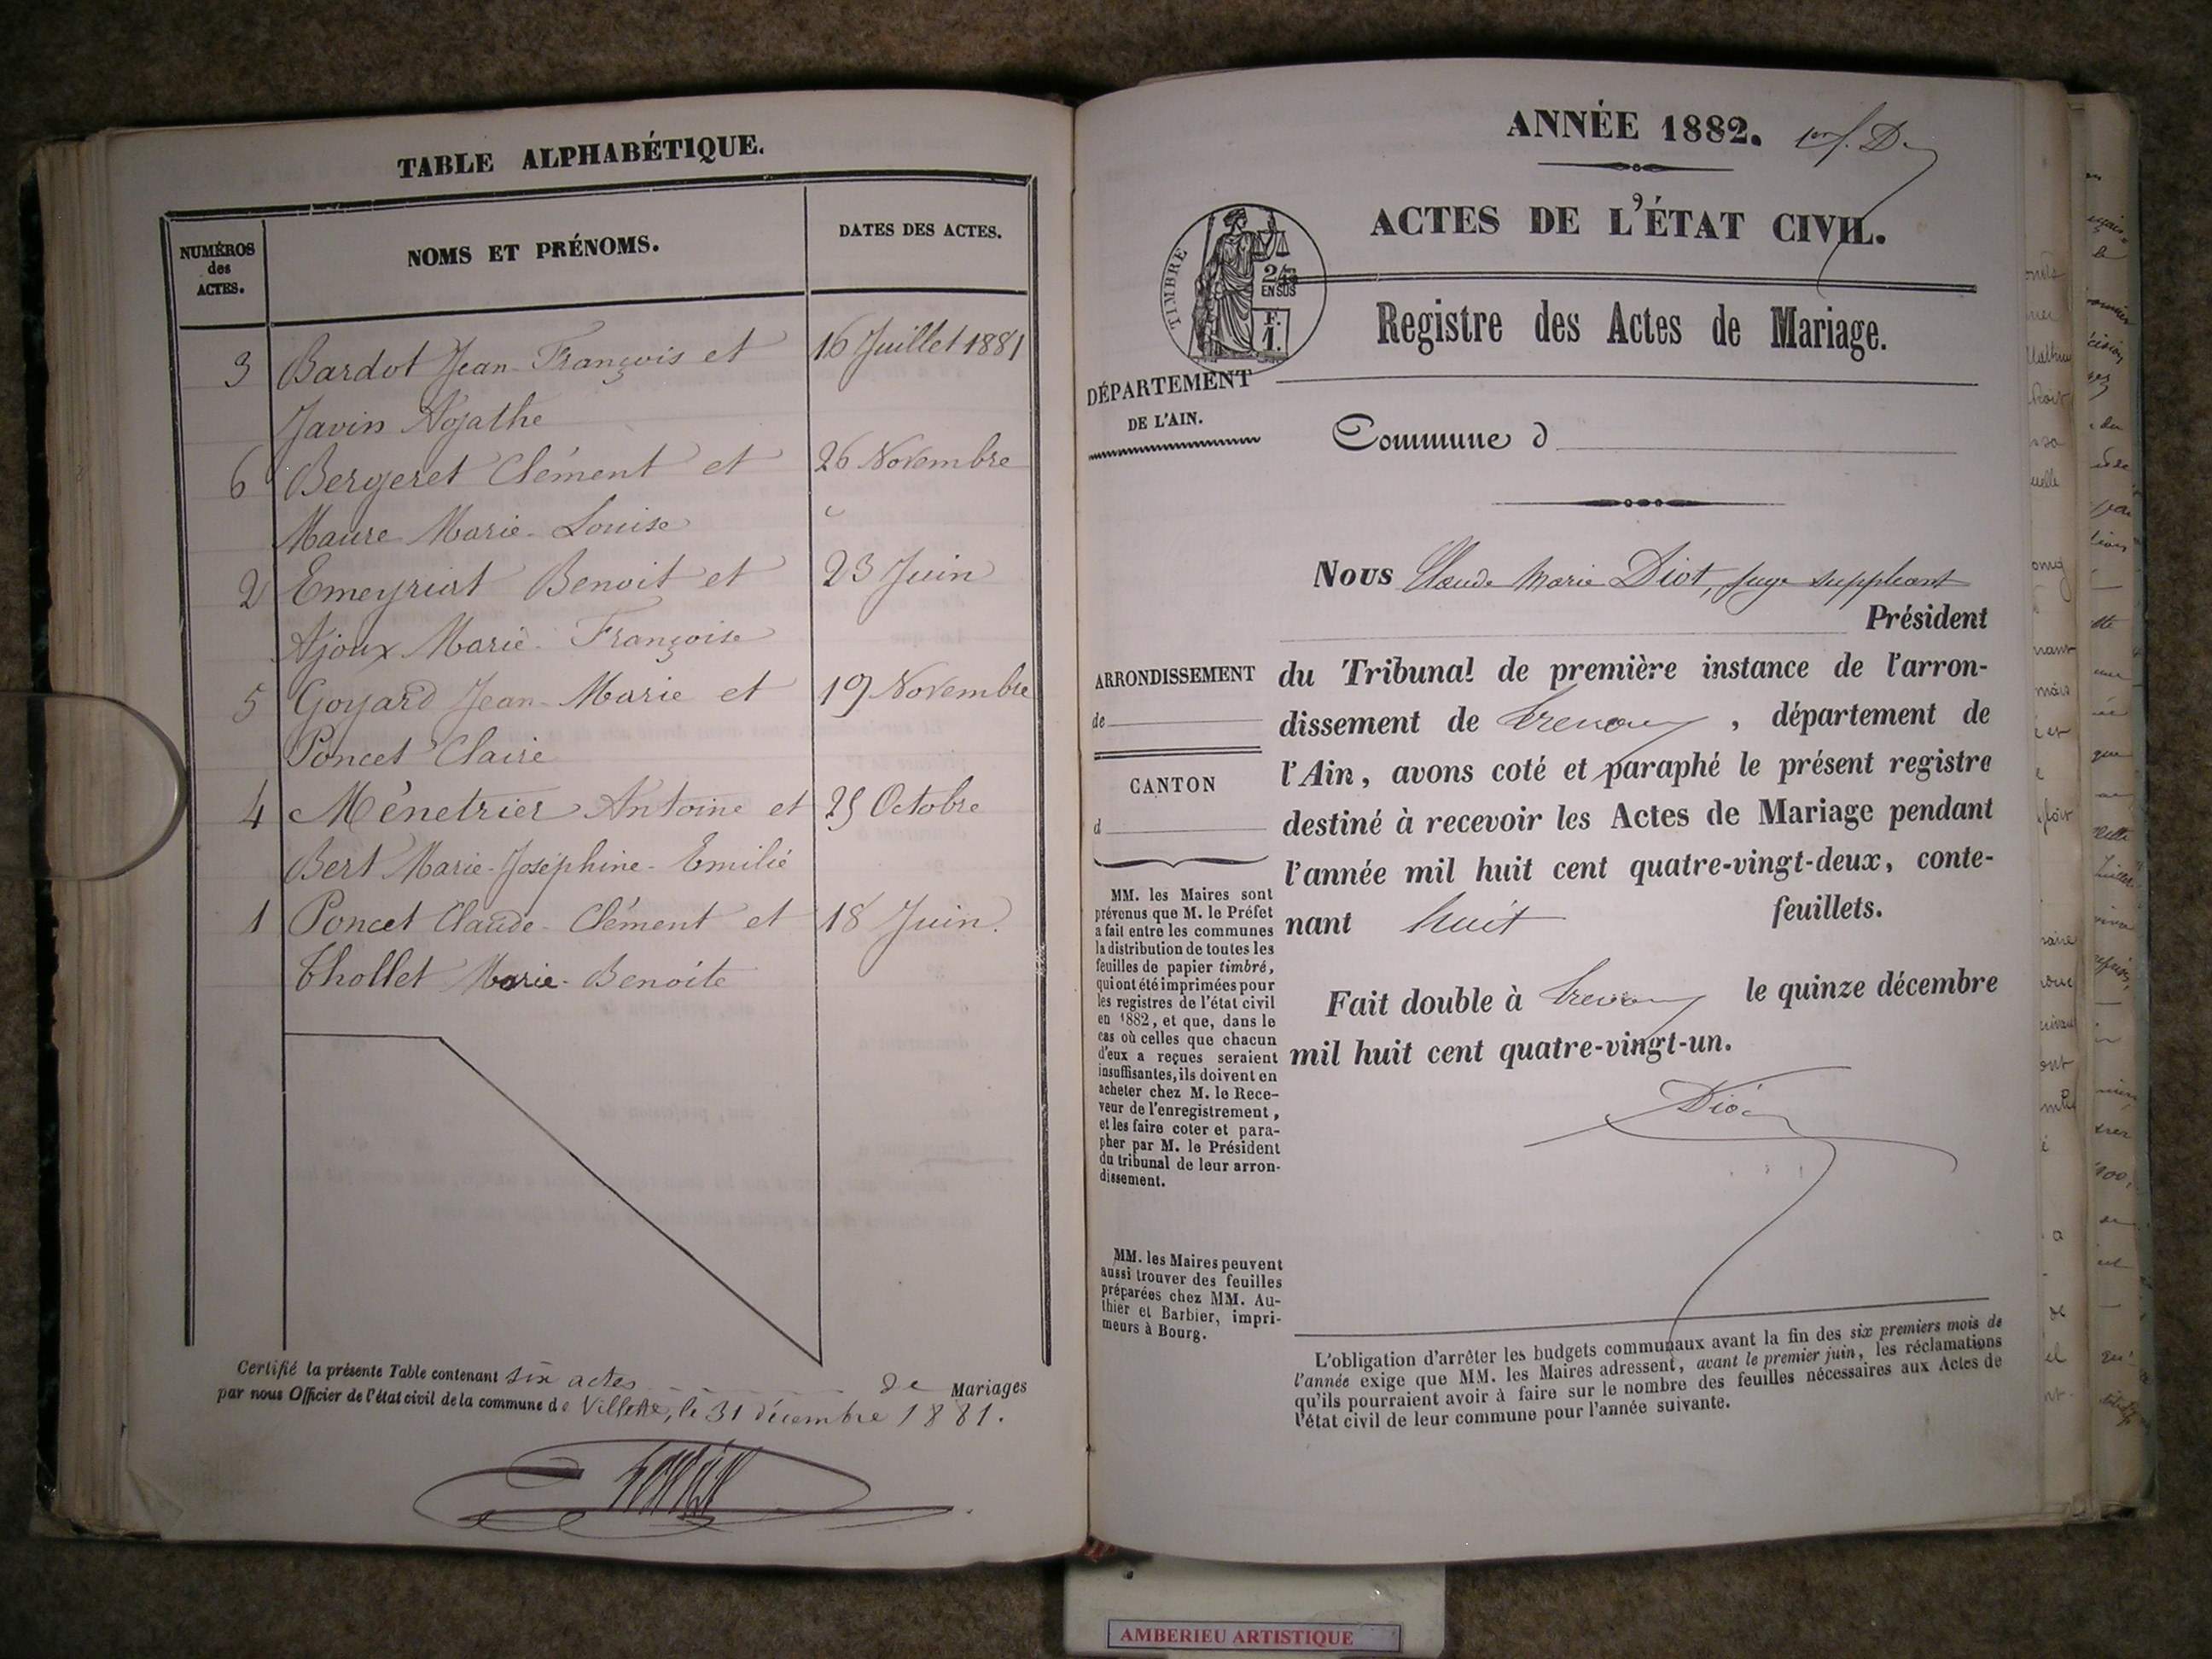 TABLE ALPHABÉTIQUE.
NUMÉROS des ACTES.
NOMS ET PRÉNOMS.
DATES DES ACTES.
3 Bardot Jean-François et 16 Juillet 1881
Javin Agathe
6 Bergeret Clément et 26 Novembre
Maure Marie-Louise
2 Emeyriat Benoit et 23 Juin
Ajoux Marie-Françoise
5 Goyard Jean-Marie et 19 Novembre
Poncet Claire
4 Ménetrier Antoine et 25 Octobre
Bert Marie-Joséphine-Emilie
1 Poncet Claude-Clément et 18 Juin.
Thollet Marie-Benoite
Certifié la présente Table contenant six actes de Mariages
par nous Officier de l'état civil de la commune de Villette, le 31 décembre 1881.
ANNÉE 1882. 1er f. D
ACTES DE L'ÉTAT CIVIL.
TIMBRE
2/10
EN SUS
F.
1.
Registre des Actes de Mariage.
DÉPARTEMENT
DE L'AIN.
Commune d
Nous Claude Marie Diot, juge suppléant
Président
ARRONDISSEMENT
de
CANTON
d
du Tribunal de première instance de l'arron-
dissement de Trévoux, département de
l'Ain, avons coté et paraphé le présent registre
destiné à recevoir les Actes de Mariage pendant
l'année mil huit cent quatre-vingt-deux, conte-
nant huit feuillets.
Fait double à Trévoux le quinze décembre
mil huit cent quatre-vingt-un.
Diot
MM. les Maires sont
prévenus que M. le Préfet
a fait entre les communes
la distribution de toutes les
feuilles de papier timbré,
qui ont été imprimées pour
les registres de l'état civil
en 1882, et que, dans le
cas où celles que chacun
d'eux a reçues seraient
insuffisantes, ils doivent en
acheter chez M. le Rece-
veur de l'enregistrement,
et les faire coter et para-
pher par M. le Président
du tribunal de leur arron-
dissement.
MM. les Maires peuvent
aussi trouver des feuilles
préparées chez MM. Au-
thier et Barbier, impri-
meurs à Bourg.
L'obligation d'arrêter les budgets communaux avant la fin des six premiers mois de
l'année exige que MM. les Maires adressent, avant le premier juin, les réclamations
qu'ils pourraient avoir à faire sur le nombre des feuilles nécessaires aux Actes de
l'état civil de leur commune pour l'année suivante.
AMBERIEU ARTISTIQUE